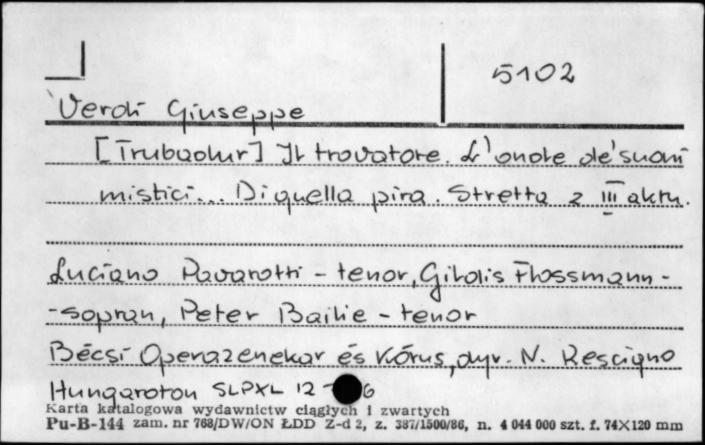 5102
Verdi Giuseppe
[Trubadur] Il trovatore. L'onde de'suoni
mistici... Di quella pira. Stretta z III aktu.
Luciano Pavarotti - tenor, Gildis Flossmann -
- sopran, Peter Bailie - tenor
Bécsi Operazenekar és Kórus, dyr. N. Rescigno
Hungaroton SLPXL 12
Karta katalogowa wydawnictw ciągłych i zwartych
Pu-B-144 zam. nr 768/DW/ON ŁDD Z-d 2, z. 387/1500/86, n. 4 044 000 szt. f. 74×120 mm